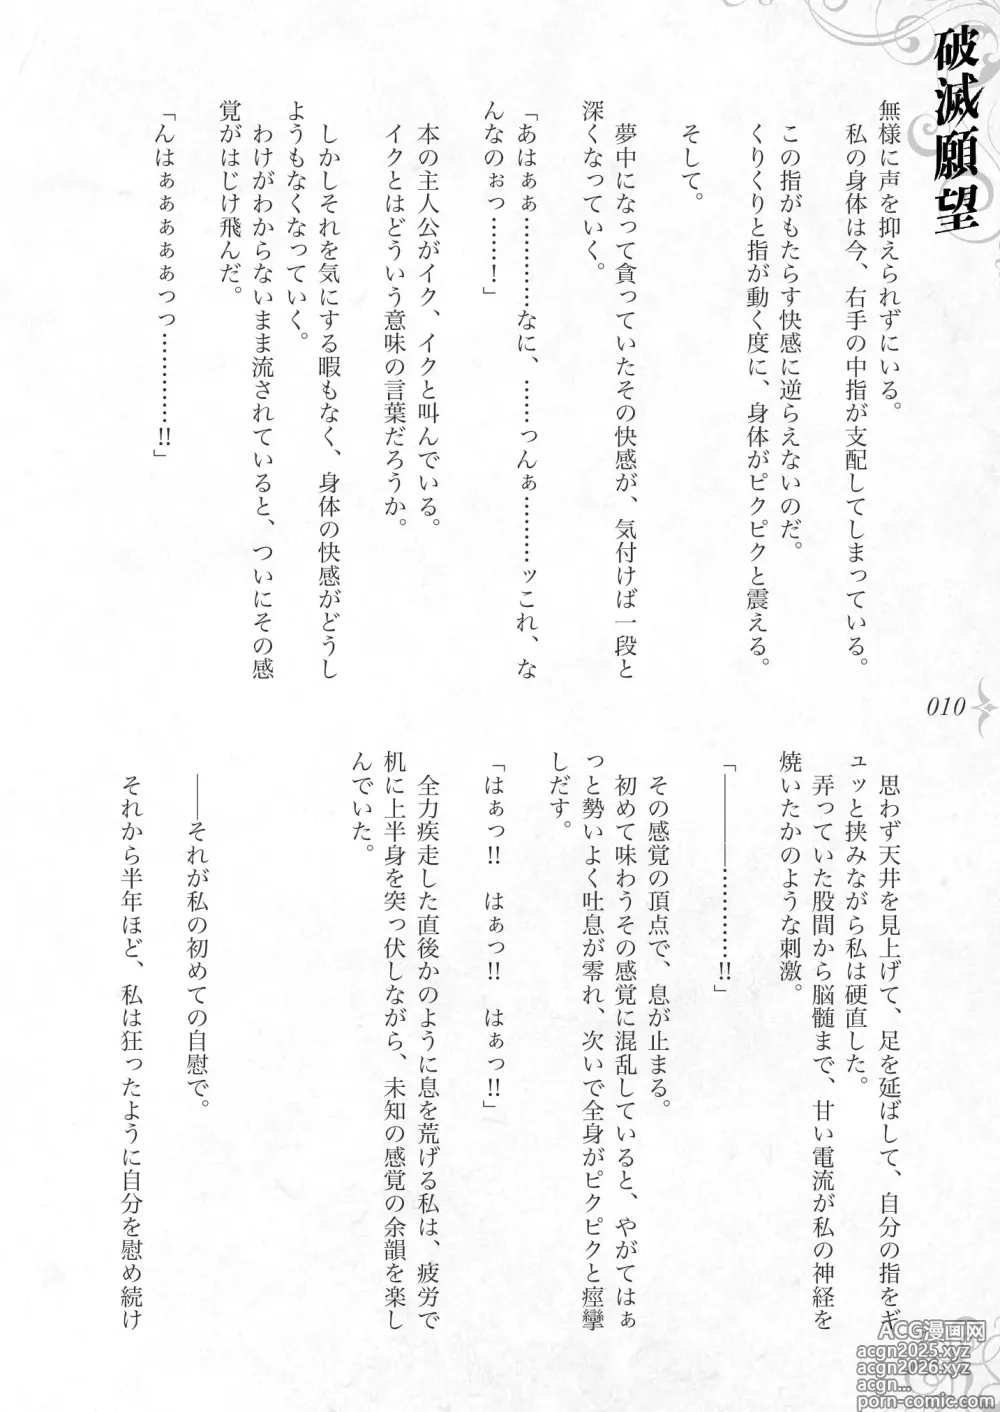 破滅願望
無様に声を抑えられずにいる。
私の身体は今、右手の中指が支配してしまっている。
この指がもたらす快感に逆らえないのだ。
くりくりと指が動く度に、身体がピクピクと震える。
そして。
夢中になって貪っていたその快感が、気付けば一段と
深くなっていく。
「あはぁぁ…………なに、……っんぁ………ッこれ、な
んなのぉっ………！」
本の主人公がイク、イクと叫んでいる。
イクとはどういう意味の言葉だろうか。
しかしそれを気にする暇もなく、身体の快感がどうし
ようもなくなっていく。
わけがわからないまま流されていると、ついにその感
覚がはじけ飛んだ。
「んはぁぁぁぁぁっっ…………!!」
010
思わず天井を見上げて、足を延ばして、自分の指をギ
ュッと挟みながら私は硬直した。
弄っていた股間から脳髄まで、甘い電流が私の神経を
焼いたかのような刺激。
「――――…………!!」
その感覚の頂点で、息が止まる。
初めて味わうその感覚に混乱していると、やがてはぁ
っと勢いよく吐息が零れ、次いで全身がピクピクと痙攣
しだす。
「はぁっ!!　はぁっ!!　はぁっ!!」
全力疾走した直後かのように息を荒げる私は、疲労で
机に上半身を突っ伏しながら、未知の感覚の余韻を楽し
んでいた。
――それが私の初めての自慰で。
それから半年ほど、私は狂ったように自分を慰め続け
ACG漫画网
acgn2025.xyz
acgn2026.xyz
acgn...
porn-comic.com